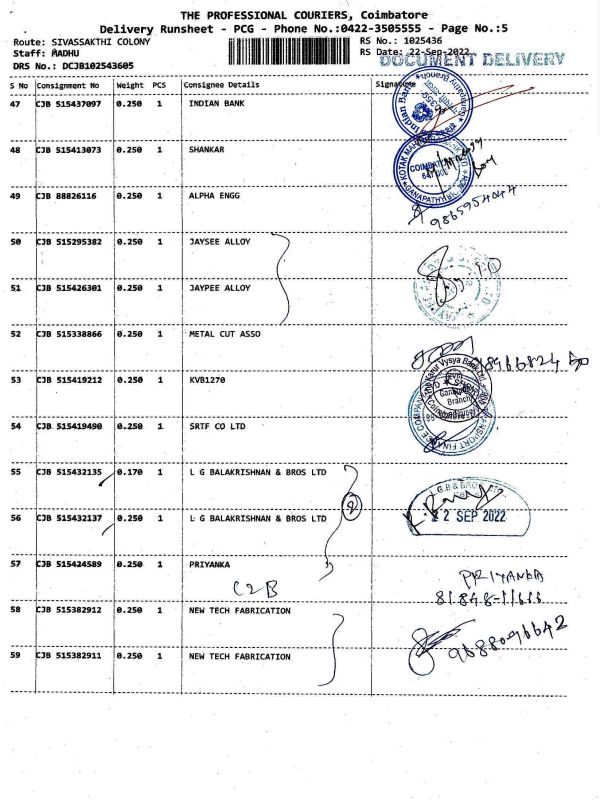 THE PROFESSIONAL COURIERS, Coimbatore
Delivery Runsheet - PCG - Phone No.:0422-3505555 - Page No.:5
Route: SIVASSAKTHI COLONY RS No.: 1025436
Staff: MADHU RS Date: 22-Sep-2022
DOCUMENT DELIVERY
DRS No.: DCJB102543605
S No Consignment No Weight PCS Consignee Details Signature
47 CJB 515437097 0.250 1 INDIAN BANK
Indian Bank
48 CJB 515413073 0.250 1 SHANKAR
KOTAK COIMBATORE GANAPATHY
49 CJB 88826116 0.250 1 ALPHA ENGG
50 CJB 515295382 0.250 1 JAYSEE ALLOY
51 CJB 515426301 0.250 1 JAYPEE ALLOY
52 CJB 515338866 0.250 1 METAL CUT ASSO
53 CJB 515419212 0.250 1 KVB1270
The Karur Vysya Bank Ltd Branch
54 CJB 515419490 0.250 1 SRTF CO LTD
TRANSPORT FINANCE COMPANY
55 CJB 515432135 0.170 1 L G BALAKRISHNAN & BROS LTD
L.G.B & BROS LTD.
56 CJB 515432137 0.250 1 L G BALAKRISHNAN & BROS LTD
2 2 SEP 2022
57 CJB 515424589 0.250 1 PRIYANKA
PRIYANKA
C2B
58 CJB 515382912 0.250 1 NEW TECH FABRICATION
9688096642
59 CJB 515382911 0.250 1 NEW TECH FABRICATION